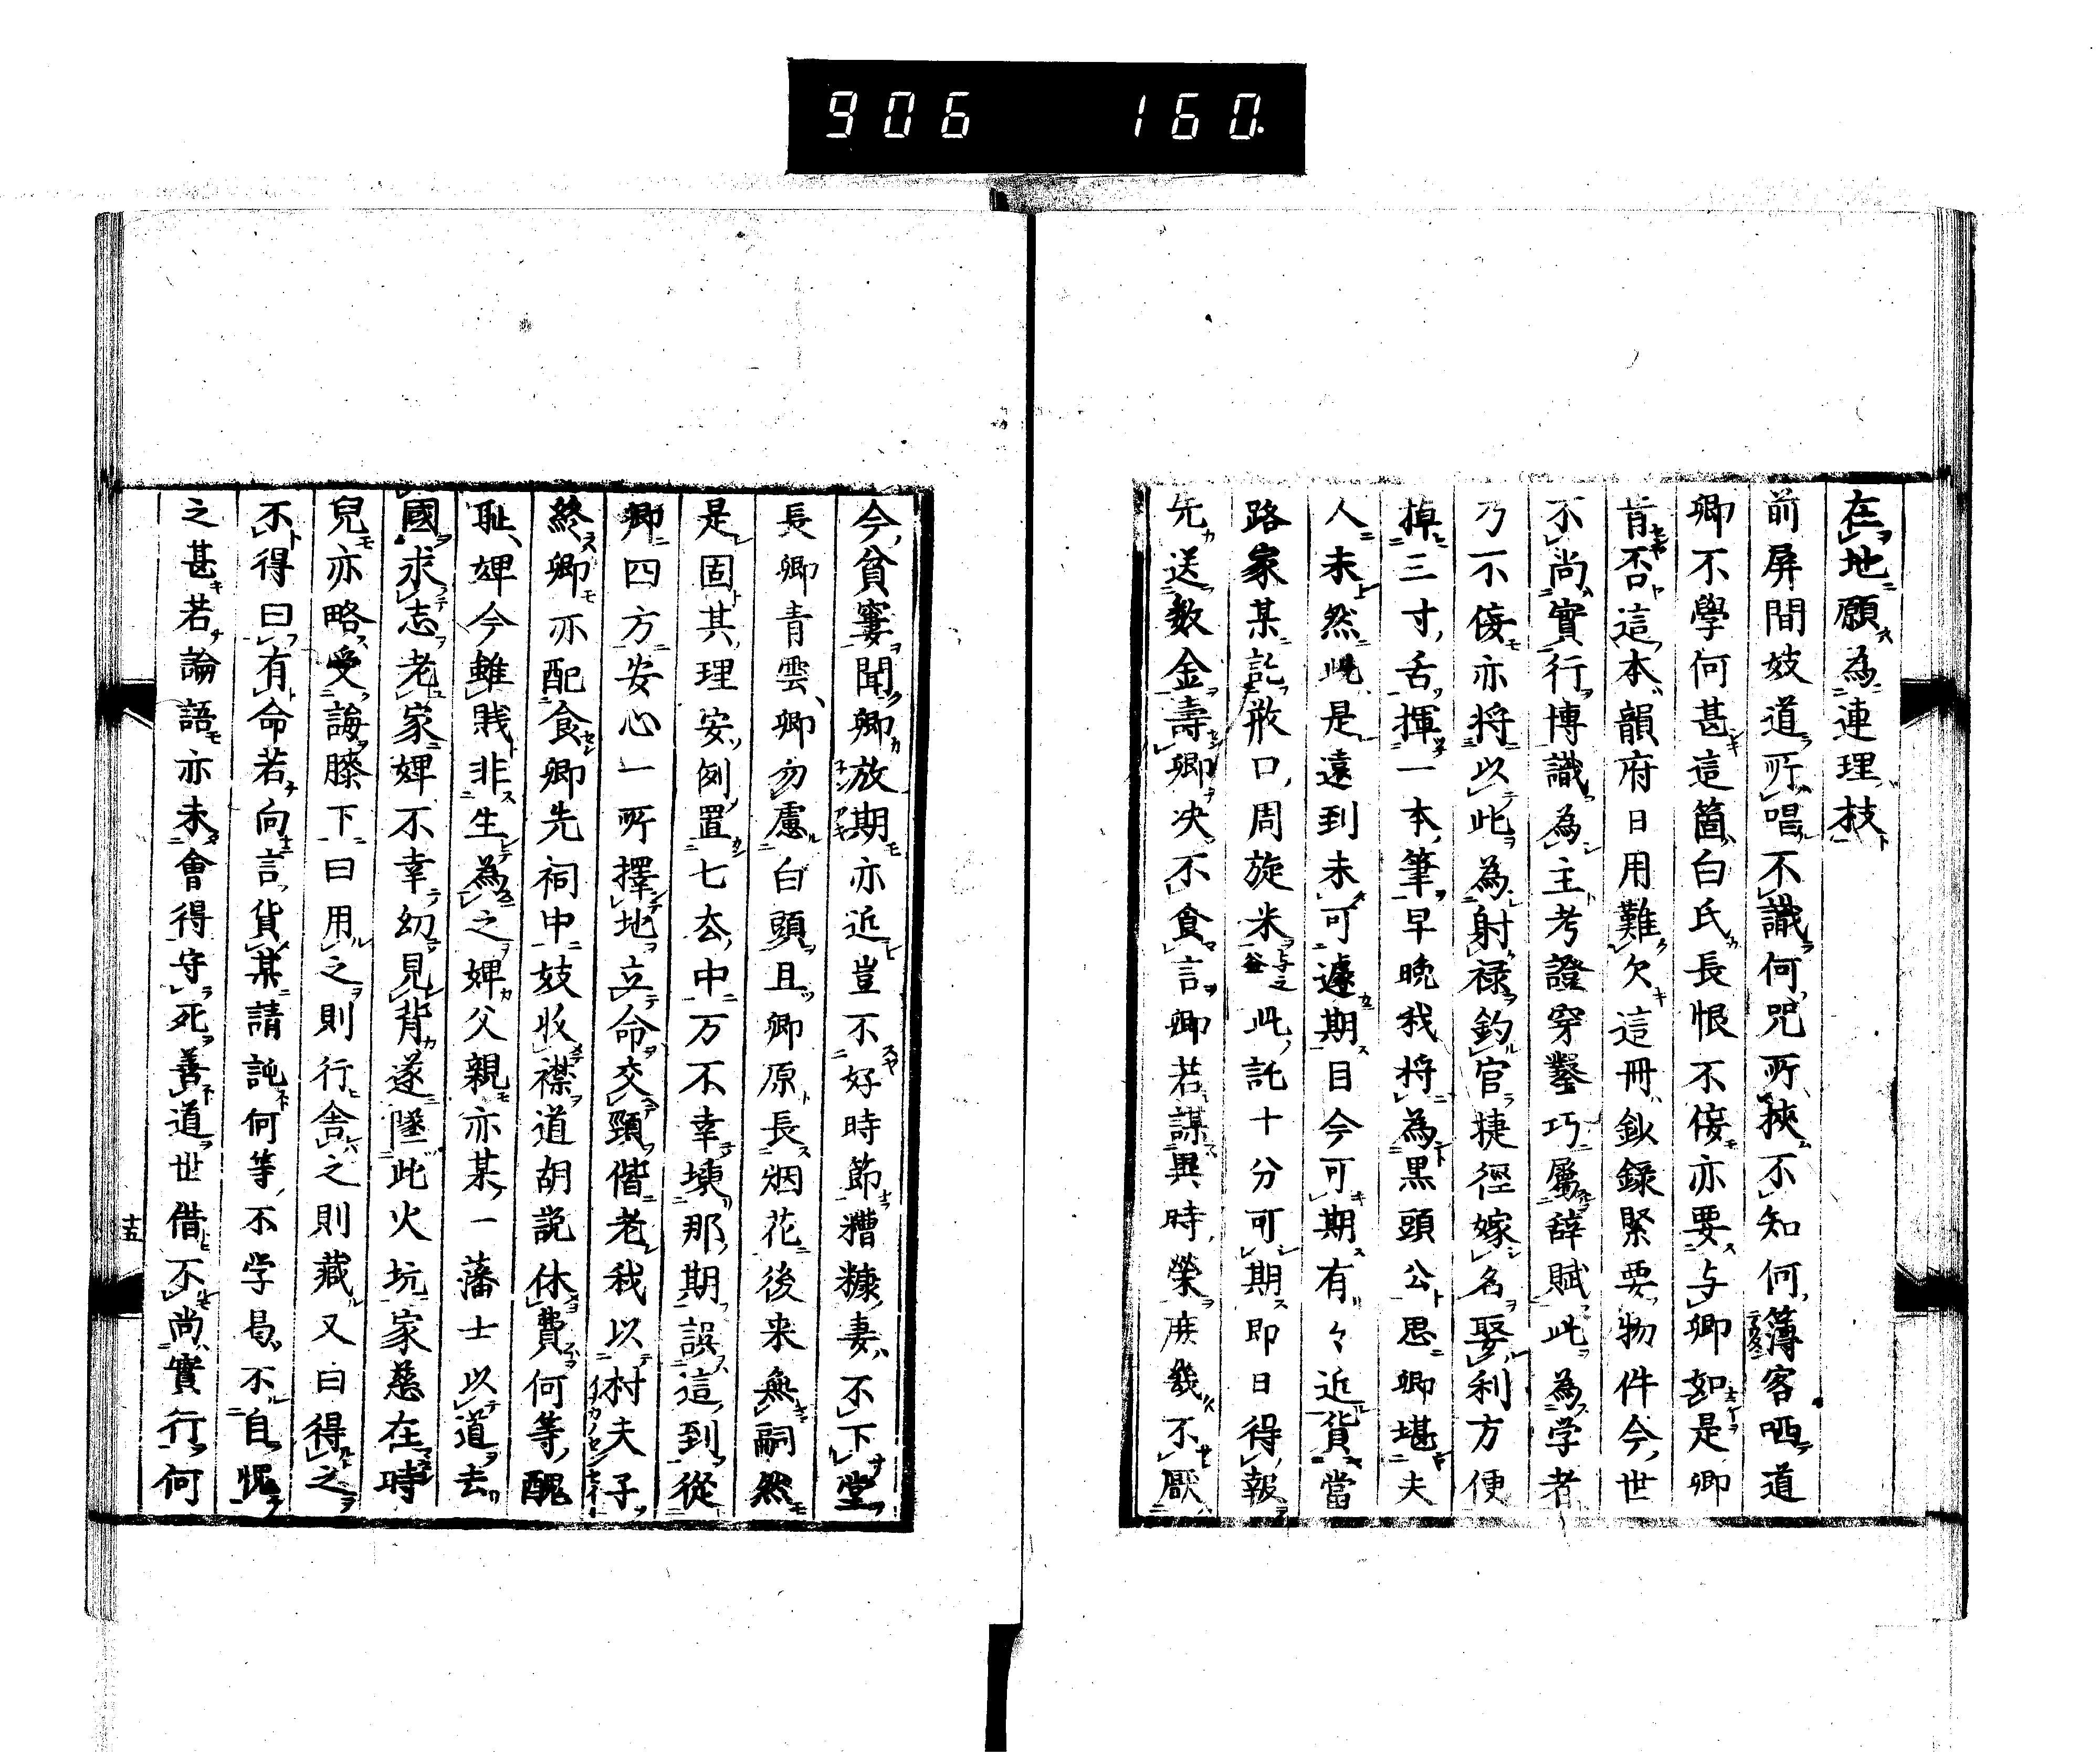 906 160.
在地願為連理枝
前屏間妓道所唱不識何咒所挾不知何簿客哂道
卿不學何甚這箇白氏長恨不侫亦要与卿如是卿
肯否這本韻府日用難欠這冊鈔錄緊要物件今世
不尚實行博識為主考證穿鑿巧屬辞賦此為学者
乃不侫亦将以此為射禄釣官捷徑嫁名娶利方便
掉三寸舌揮一本筆早晩我将為黒頭公思卿堪夫
人未然此是遠到未可遽期目今可期有々近貨當
路家某託散口周旋米此託十分可期即日得報
先送数金壽卿决不食言卿若謀異時榮庶幾不厭
今貧窶聞卿放期亦近豈不好時節糟糠妻不下堂
長卿青雲卿勿慮白頭且卿原長烟花後来無嗣然
是固其理安例置七厺中万不幸壊那期誤這到從
卿四方安心一所擇地立命交頸偕老我以村夫子
終卿亦配食卿先祠中妓收襟道胡説休費何等醜
恥婢今雖賎非生為之婢父親亦某一藩士以道去
國求志老家婢不幸幼見背遂墜此火坑家慈在時
兒亦略受誨膝下曰用之則行舎之則藏又曰得之
不得曰有命若向言貨某請訑何等不学曷不自愧
之甚若論語亦未會得守死善道世借不尚實行何
十五